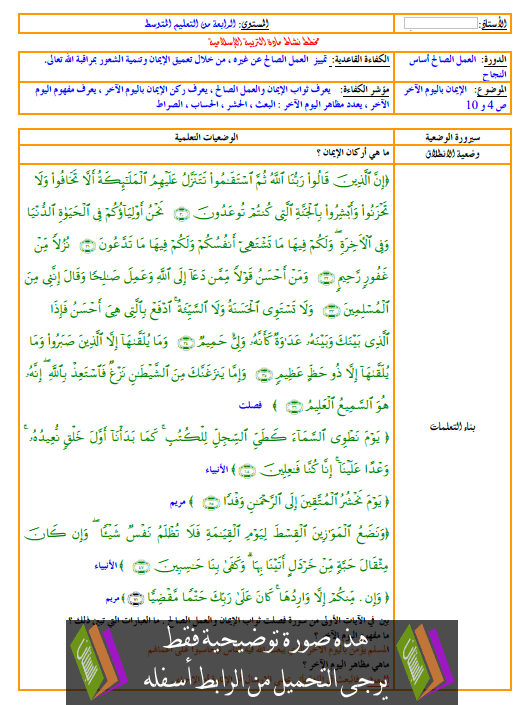 الأستاذ:
المستوى: الرابعة من التعليم المتوسط
مخطط نشاط مادة التربية الإسلامية
الدورة: العمل الصالح أساس النجاح
الكفاءة القاعدية: تمييز العمل الصالح عن غيره ، من خلال تعميق الإيمان وتنمية الشعور بمراقبة الله تعالى.
الموضوع: الإيمان باليوم الآخر
ص 4 و 10
مؤشر الكفاءة: يعرف ثواب الإيمان والعمل الصالح ، يعرف ركن الإيمان باليوم الآخر ، يعرف مفهوم اليوم
الآخر ، يعدد مظاهر اليوم الآخر : البعث ، الحشر ، الحساب ، الصراط
سيرورة الوضعية
الوضعيات التعلمية
وضعية الانطلاق
ما هي أركان الإيمان ؟
بناء التعلمات
﴿إِنَّ ٱلَّذِينَ قَالُوا۟ رَبُّنَا ٱللَّهُ ثُمَّ ٱسْتَقَٰمُوا۟ تَتَنَزَّلُ عَلَيْهِمُ ٱلْمَلَٰٓئِكَةُ أَلَّا تَخَافُوا۟ وَلَا
تَحْزَنُوا۟ وَأَبْشِرُوا۟ بِٱلْجَنَّةِ ٱلَّتِى كُنتُمْ تُوعَدُونَ ۝ نَحْنُ أَوْلِيَآؤُكُمْ فِى ٱلْحَيَوٰةِ ٱلدُّنْيَا
وَفِى ٱلْءَاخِرَةِ ۖ وَلَكُمْ فِيهَا مَا تَشْتَهِىٓ أَنفُسُكُمْ وَلَكُمْ فِيهَا مَا تَدَّعُونَ ۝ نُزُلًا مِّنْ
غَفُورٍ رَّحِيمٍ ۝ وَمَنْ أَحْسَنُ قَوْلًا مِّمَّن دَعَآ إِلَى ٱللَّهِ وَعَمِلَ صَٰلِحًا وَقَالَ إِنَّنِى مِنَ
ٱلْمُسْلِمِينَ ۝ وَلَا تَسْتَوِى ٱلْحَسَنَةُ وَلَا ٱلسَّيِّئَةُ ۚ ٱدْفَعْ بِٱلَّتِى هِىَ أَحْسَنُ فَإِذَا
ٱلَّذِى بَيْنَكَ وَبَيْنَهُۥ عَدَٰوَةٌ كَأَنَّهُۥ وَلِىٌّ حَمِيمٌ ۝ وَمَا يُلَقَّىٰهَآ إِلَّا ٱلَّذِينَ صَبَرُوا۟ وَمَا
يُلَقَّىٰهَآ إِلَّا ذُو حَظٍّ عَظِيمٍ ۝ وَإِمَّا يَنزَغَنَّكَ مِنَ ٱلشَّيْطَٰنِ نَزْغٌ فَٱسْتَعِذْ بِٱللَّهِ ۖ إِنَّهُۥ
هُوَ ٱلسَّمِيعُ ٱلْعَلِيمُ ۝ ﴾ فصلت
﴿ يَوْمَ نَطْوِى ٱلسَّمَآءَ كَطَىِّ ٱلسِّجِلِّ لِلْكُتُبِ ۚ كَمَا بَدَأْنَآ أَوَّلَ خَلْقٍ نُّعِيدُهُۥ ۚ
وَعْدًا عَلَيْنَآ ۚ إِنَّا كُنَّا فَٰعِلِينَ ۝ ﴾ الأنبياء
﴿ يَوْمَ نَحْشُرُ ٱلْمُتَّقِينَ إِلَى ٱلرَّحْمَٰنِ وَفْدًا ۝ ﴾ مريم
﴿وَنَضَعُ ٱلْمَوَٰزِينَ ٱلْقِسْطَ لِيَوْمِ ٱلْقِيَٰمَةِ فَلَا تُظْلَمُ نَفْسٌ شَيْـًٔا ۖ وَإِن كَانَ
مِثْقَالَ حَبَّةٍ مِّنْ خَرْدَلٍ أَتَيْنَا بِهَا ۗ وَكَفَىٰ بِنَا حَٰسِبِينَ ۝ ﴾ الأنبياء
﴿ وَإِن مِّنكُمْ إِلَّا وَارِدُهَا ۚ كَانَ عَلَىٰ رَبِّكَ حَتْمًا مَّقْضِيًّا ۝ ﴾ مريم
بين في الآيات الأولى من سورة فصلت ثواب الإيمان والعمل الصالح . ما العبارات التي تبين ذلك ؟
ما مفهوم اليوم الآخر ؟
ماهي مظاهر اليوم الآخر ؟
هذه صورة توضيحية فقط
يرجى التحميل من الرابط أسفله